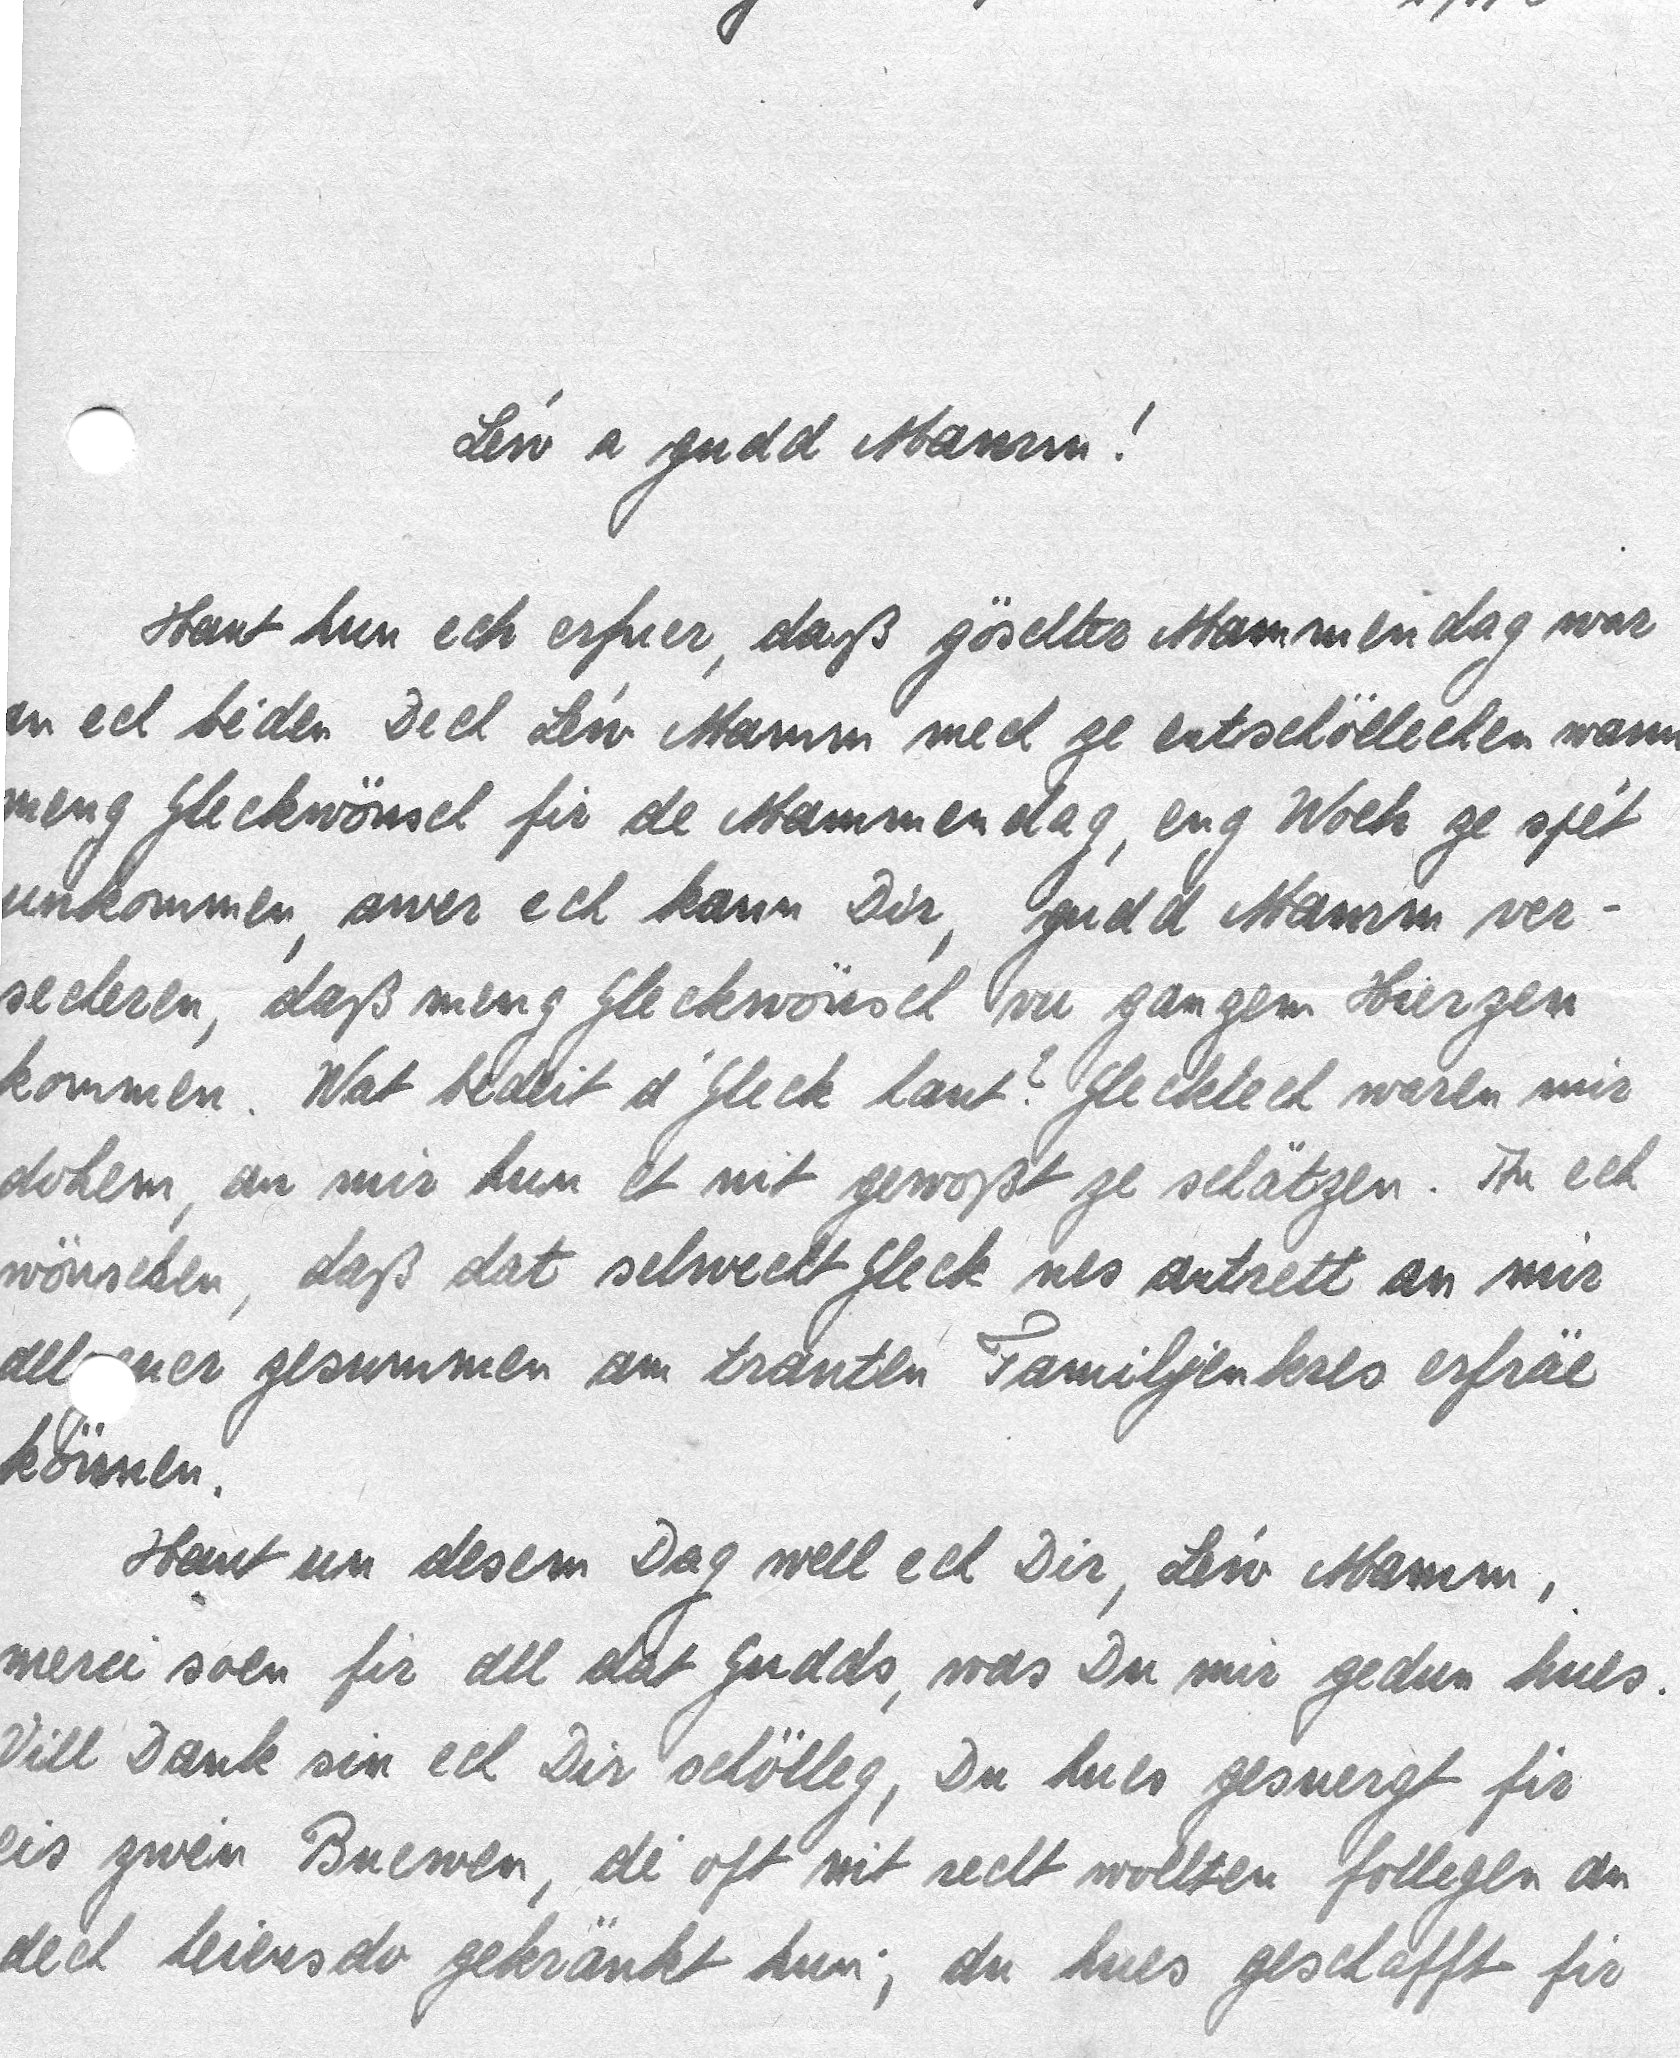 Léiw a gudd Mamm!
Haut hun ech erfuer, daß göschter Mammendag war
an ech bieden Dech Léiw Mamm mech ze entschöllechen wann
meng Gleckwönsch fir de Mammendag, eng Woch ze spét
unkommen, awer ech kann Dir, gudd Mamm ver-
secheren, daß meng Gleckwönsch vu ganzem Hierzen
kommen. Wat bedeit d'Gleck haut? Glecklech waren mir
dohem, an mir hun et nit gewoßt ze schätzen. An ech
wönschen, daß dat selwecht Gleck nes antrett an mir
gesummen am trauten Familjenkres erfräe
können.
Haut un desem Dag well ech Dir, Léiw Mamm,
merci soen fir all dat Gudds, was Du mir gedun hues.
Vill Dank sin ech Dir schölleg, Du hues gesuergt fir
eis zwéin Buewen, déi oft nit recht wollten follegen an
dech heiensdo gekränkt hun; du hues geschafft fir